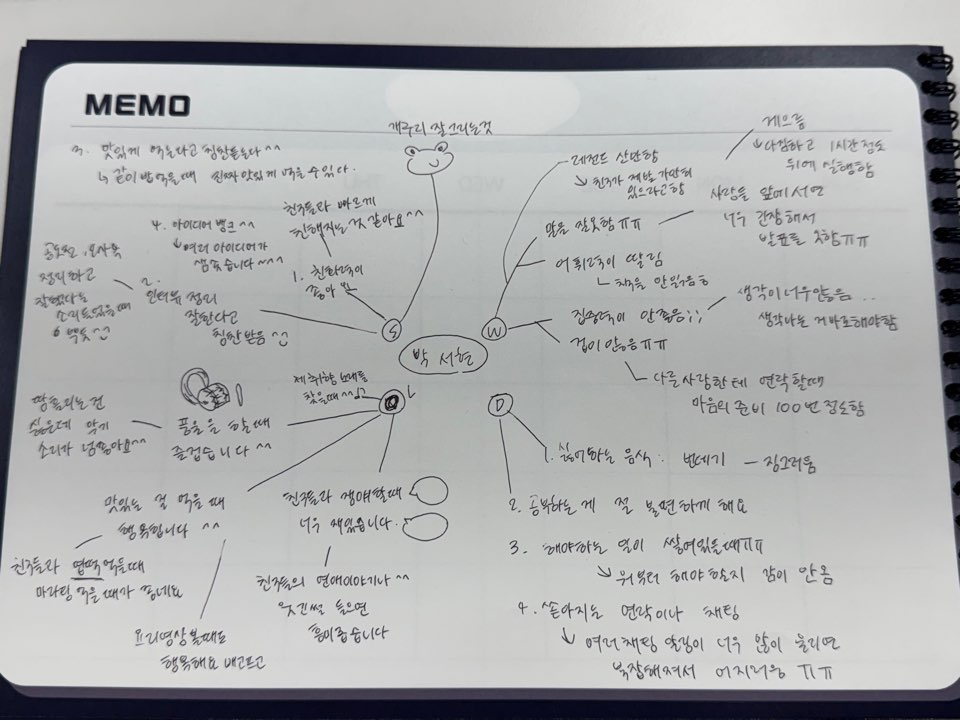 MEMO
개구리 잘 그리는것
3. 맛있게 먹는다고 칭찬들는다^^
↳ 같이 밥먹을때 진짜 맛있게 먹을 수 있다.
친구들과 빠르게
친해지는 것 같아요^^
1. 친화력이
좋아요
4. 아이디어 뱅크^^
↳ 여러 아이디어가
샘솟습니다^^^
2.
인터뷰 정리
잘한다고
칭찬받음
정리하고
잘했다는
소리들었을때
뿌듯
S
레전드 산만함
↘ 친구가 제발 가만히
있으라고함
게으름
↳ 다짐하고 1시간정도
뒤에 실행함
말을 잘못함 ㅠㅠ
사람들 앞에 서면
너무 긴장해서
발표를 못함 ㅠㅠ
어휘력이 딸림
ㄴ 책을 안읽음
집중력이 안좋음;;
생각이 너무많음..
생각나는 거 바로해야함
겁이 많음 ㅠㅠ
다른사람한테 연락할때
마음의 준비 100번정도함
W
박서현
제 취향 노래를
찾을때^^♪
풍물을 할때
즐겁습니다^^
땀흘리는건
싫은데 악기
소리가 넘좋아요^^
맛있는 걸 먹을때
행복합니다^^
친구들과 엽떡먹을때
마라탕 먹을때가 좋네요
요리영상볼때도
행복해요 배고프고
친구들과 쟁애할때
너무 재밌습니다.
친구들의 연애이야기나^^
웃긴썰 들으면
흥미롭습니다
D
1. 싫어하는 음식: 번데기 — 징그러움
2. 공부하는 게 절 불편하게 해요
3. 해야하는 일이 쌓여있을때ㅠㅠ
↘ 뭐부터 해야할지 감이 안옴
4. 쏟아지는 연락이나 채팅
↳ 여러채팅 알림이 너무 많이 울리면
복잡해져서 어지러움 ㅠㅠ